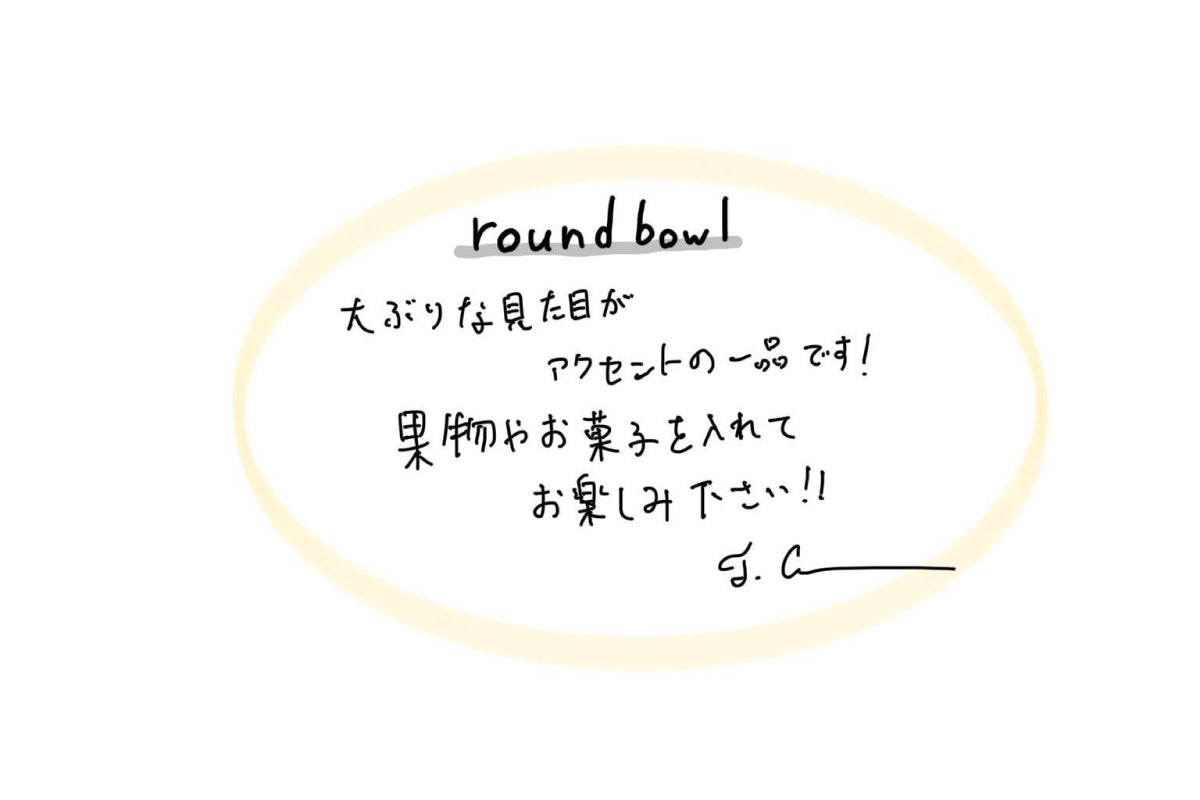 round bowl
大ぶりな見た目が
アクセントの一品です!
果物やお菓子を入れて
お楽しみ下さい!!